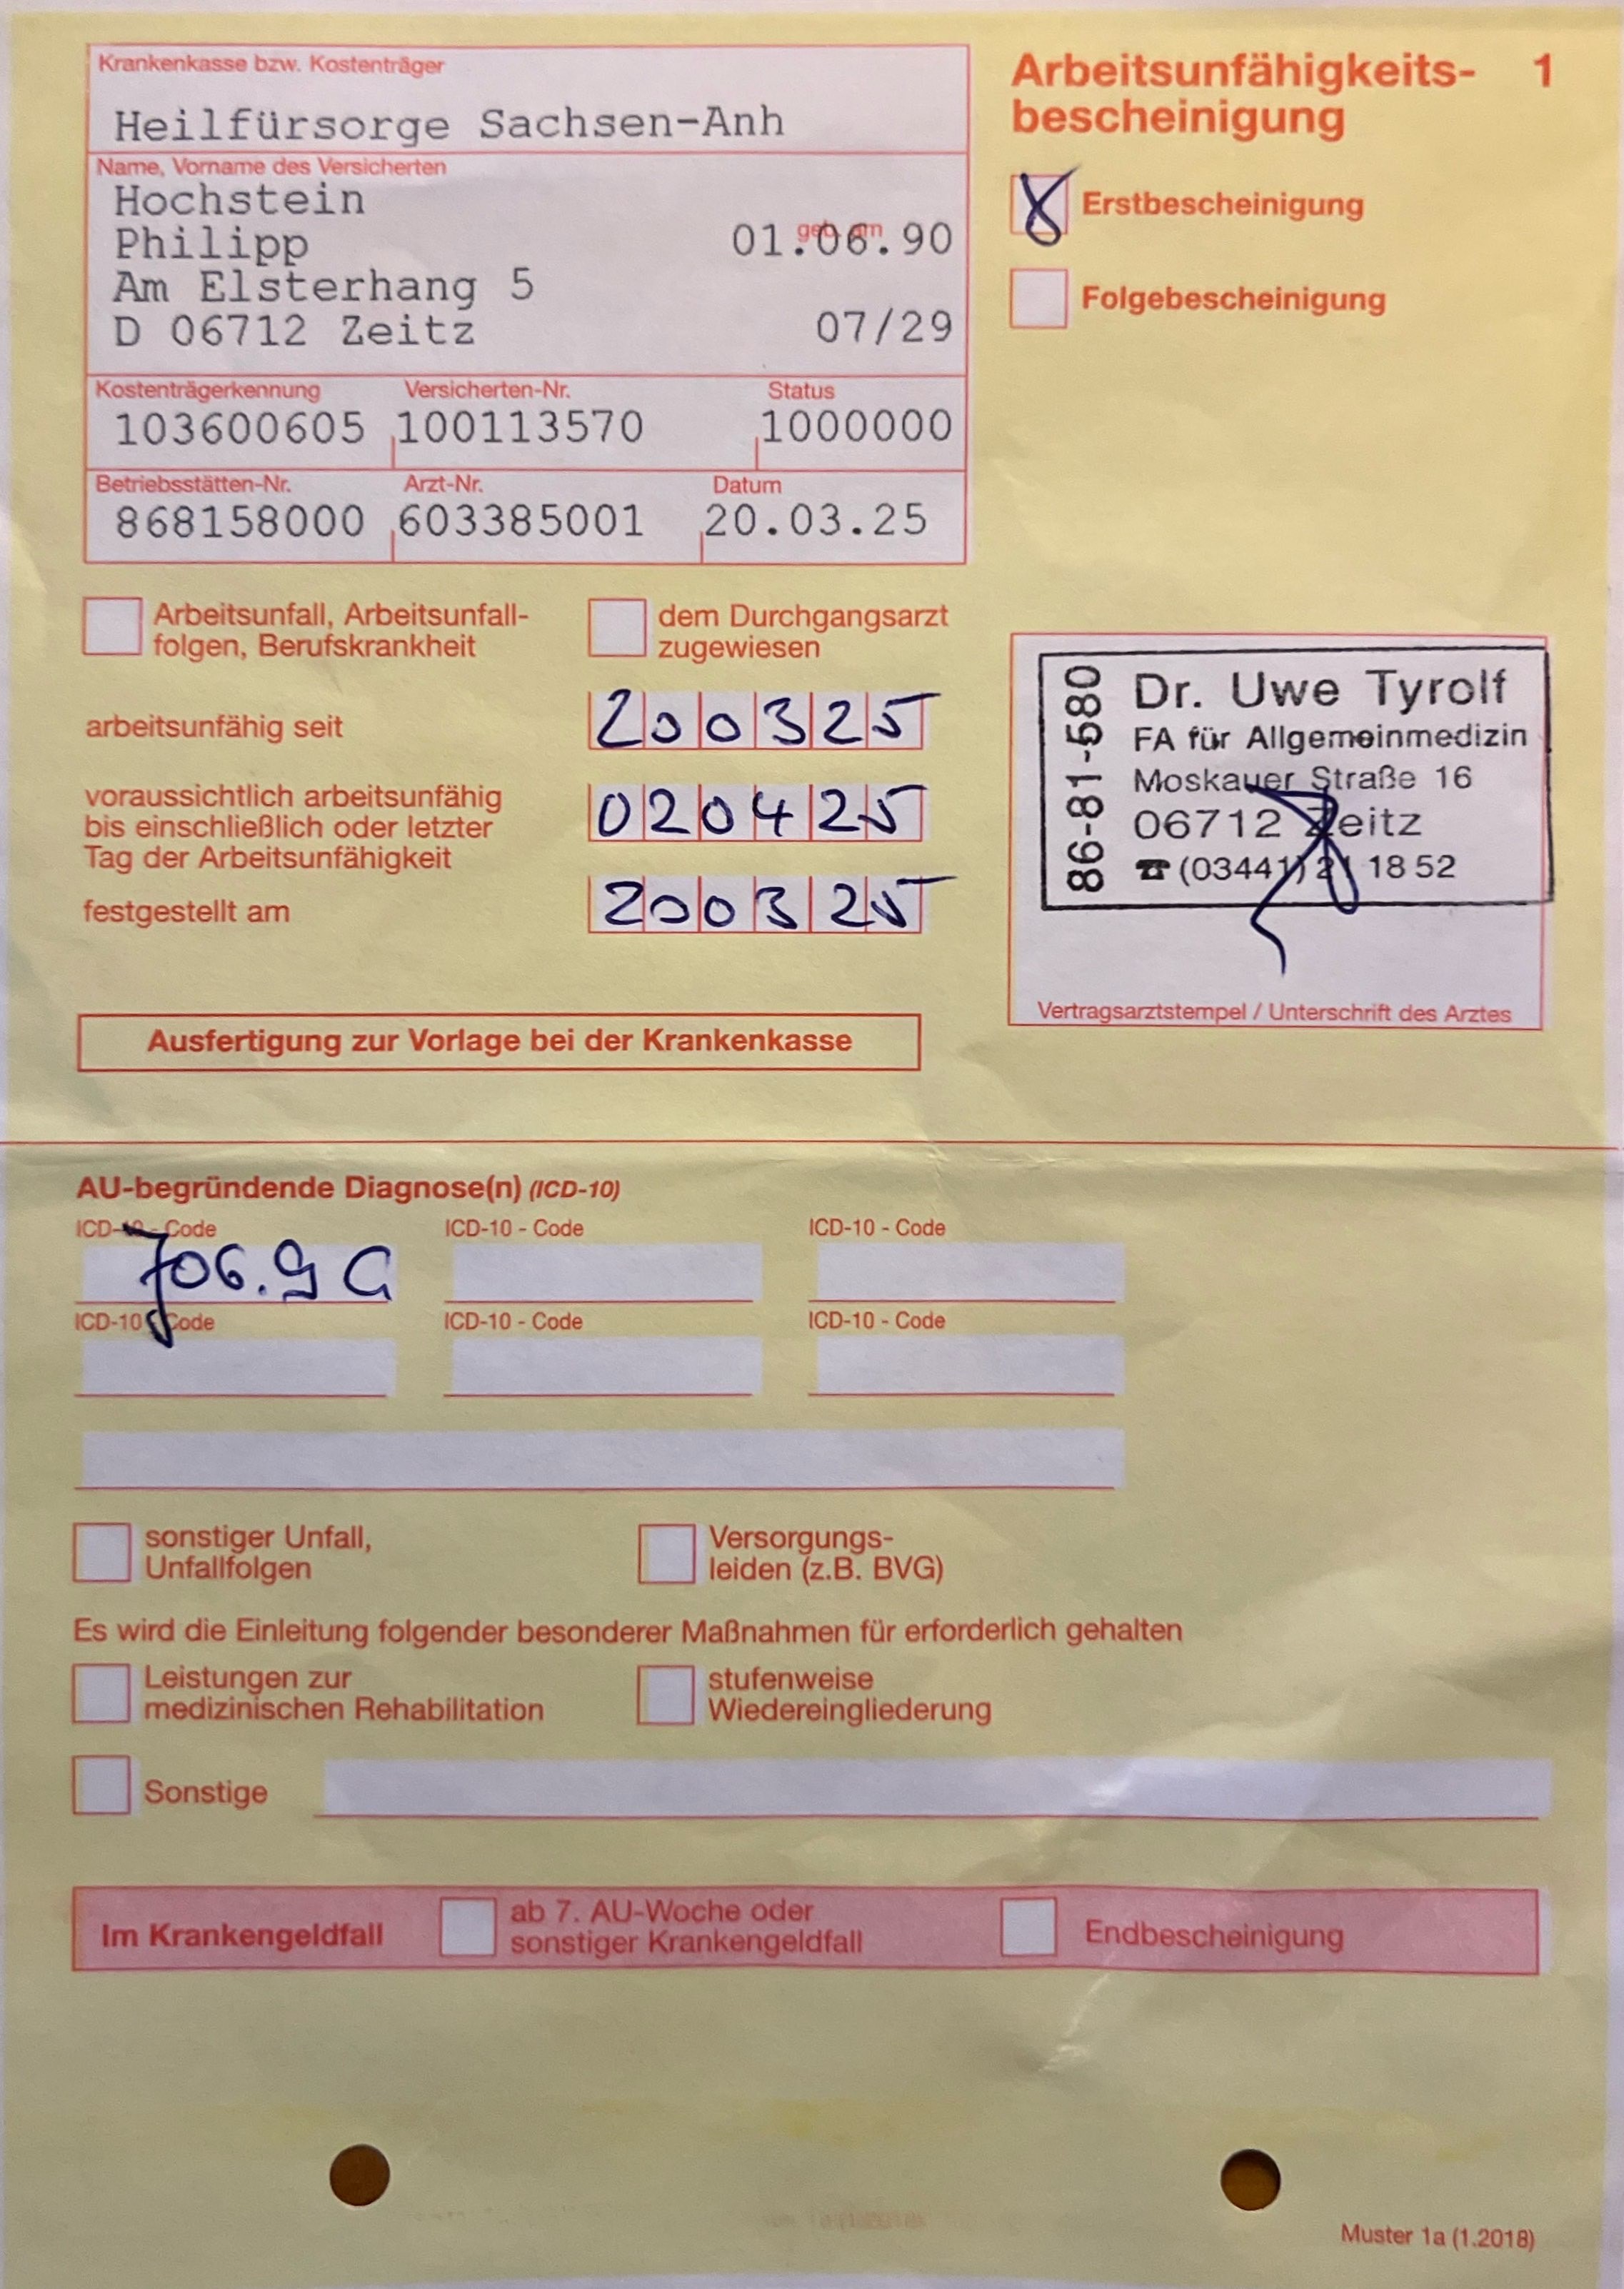 Krankenkasse bzw. Kostenträger
Heilfürsorge Sachsen-Anh
Name, Vorname des Versicherten
Hochstein
Philipp
geb. am
01.06.90
Am Elsterhang 5
D 06712 Zeitz
07/29
Kostenträgerkennung Versicherten-Nr. Status
103600605 100113570 1000000
Betriebsstätten-Nr. Arzt-Nr. Datum
868158000 603385001 20.03.25
Arbeitsunfähigkeits- 1
bescheinigung
Erstbescheinigung
Folgebescheinigung
Arbeitsunfall, Arbeitsunfall-
folgen, Berufskrankheit
dem Durchgangsarzt
zugewiesen
arbeitsunfähig seit
200325
voraussichtlich arbeitsunfähig
bis einschließlich oder letzter
Tag der Arbeitsunfähigkeit
020425
festgestellt am
200325
86-81-580
Dr. Uwe Tyrolf
FA für Allgemeinmedizin
Moskauer Straße 16
06712 Zeitz
☎ (03441) 21 18 52
Vertragsarztstempel / Unterschrift des Arztes
Ausfertigung zur Vorlage bei der Krankenkasse
AU-begründende Diagnose(n) (ICD-10)
ICD-10 - Code ICD-10 - Code ICD-10 - Code
J06.9 G
ICD-10 - Code ICD-10 - Code ICD-10 - Code
sonstiger Unfall,
Unfallfolgen
Versorgungs-
leiden (z.B. BVG)
Es wird die Einleitung folgender besonderer Maßnahmen für erforderlich gehalten
Leistungen zur
medizinischen Rehabilitation
stufenweise
Wiedereingliederung
Sonstige
Im Krankengeldfall
ab 7. AU-Woche oder
sonstiger Krankengeldfall
Endbescheinigung
Muster 1a (1.2018)